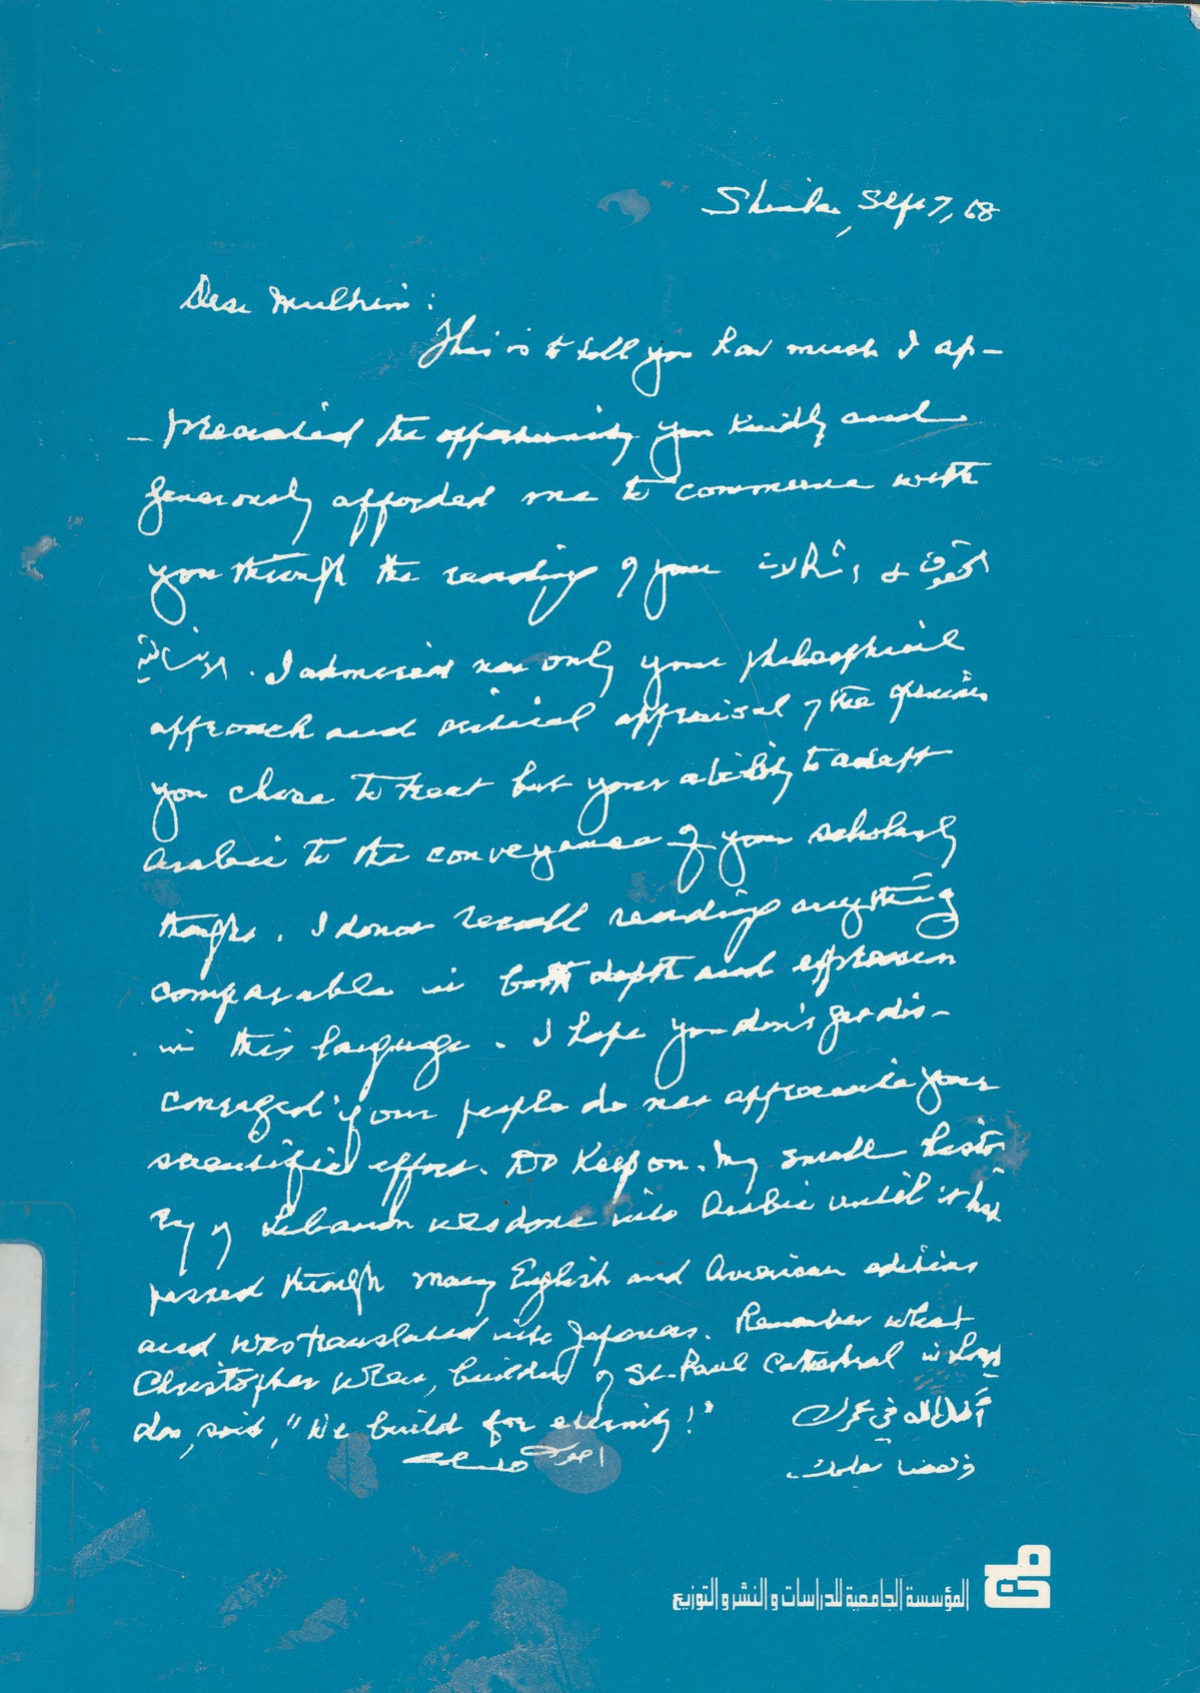 Sept 7, 68
Dear Mulhim:
This is to tell you how much I ap-
-preciated the opportunity you kindly and
generously afforded me to commune with
you through the reading of your
. I admired not only your philosophical
approach and critical appraisal of the
you chose to treat but your ability to adapt
Arabic to the conveyance of your scholarly
thoughts. I do not recall reading anything
comparable in both depth and expression
in this language. I hope you don't get dis-
couraged if our people do not appreciate your
scientific effort. Do keep on. My small histo
ry of Lebanon was done into Arabic until it had
passed through many English and American editions
and was translated into Japanese. Remember what
Christopher Wren, builder of St. Paul Cathedral in Lon
don, said, "We build for eternity!"
أطال الله في عمرك
المؤسسة الجامعية للدراسات و النشر و التوزيع
مج